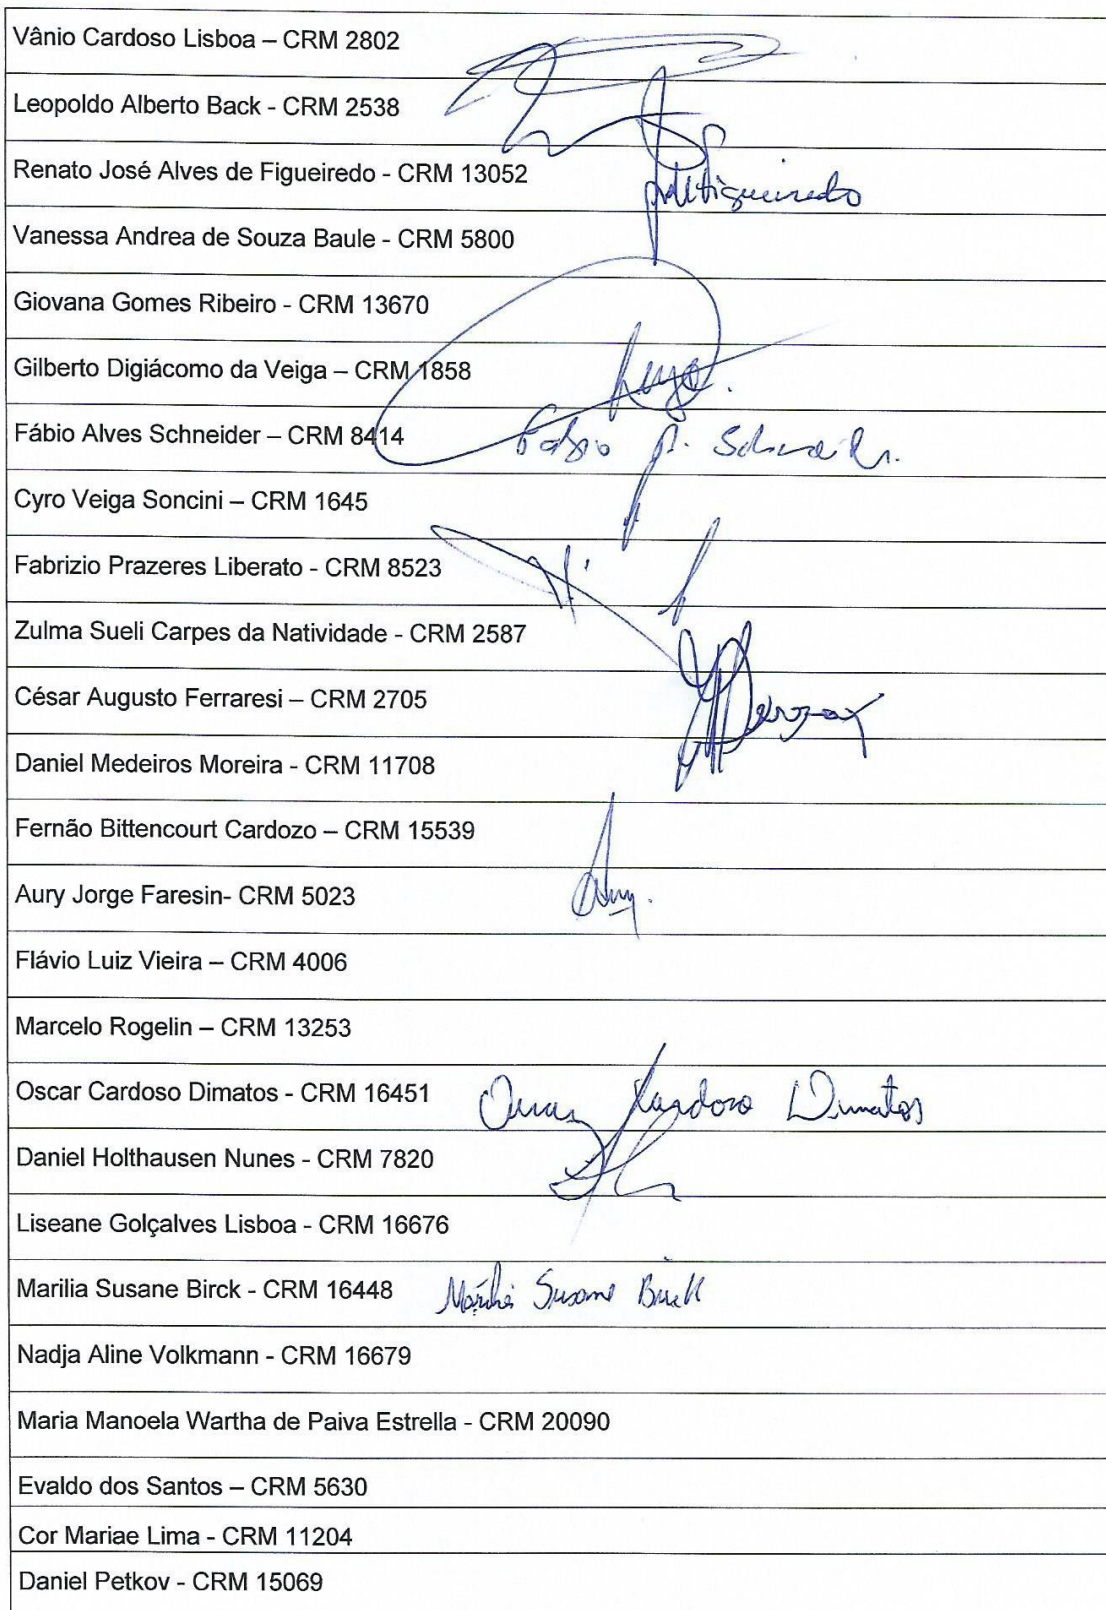 Vânio Cardoso Lisboa – CRM 2802
Leopoldo Alberto Back - CRM 2538
Renato José Alves de Figueiredo - CRM 13052
Vanessa Andrea de Souza Baule - CRM 5800
Giovana Gomes Ribeiro - CRM 13670
Gilberto Digiácomo da Veiga – CRM 1858
Fábio Alves Schneider – CRM 8414 Fabio A. Schneider
Cyro Veiga Soncini – CRM 1645
Fabrizio Prazeres Liberato - CRM 8523
Zulma Sueli Carpes da Natividade - CRM 2587
César Augusto Ferraresi – CRM 2705
Daniel Medeiros Moreira - CRM 11708
Fernão Bittencourt Cardozo – CRM 15539
Aury Jorge Faresin- CRM 5023 Aury.
Flávio Luiz Vieira – CRM 4006
Marcelo Rogelin – CRM 13253
Oscar Cardoso Dimatos - CRM 16451 Oscar Cardoso Dimatos
Daniel Holthausen Nunes - CRM 7820
Liseane Golçalves Lisboa - CRM 16676
Marilia Susane Birck - CRM 16448 Marilia Susane Birck
Nadja Aline Volkmann - CRM 16679
Maria Manoela Wartha de Paiva Estrella - CRM 20090
Evaldo dos Santos – CRM 5630
Cor Mariae Lima - CRM 11204
Daniel Petkov - CRM 15069